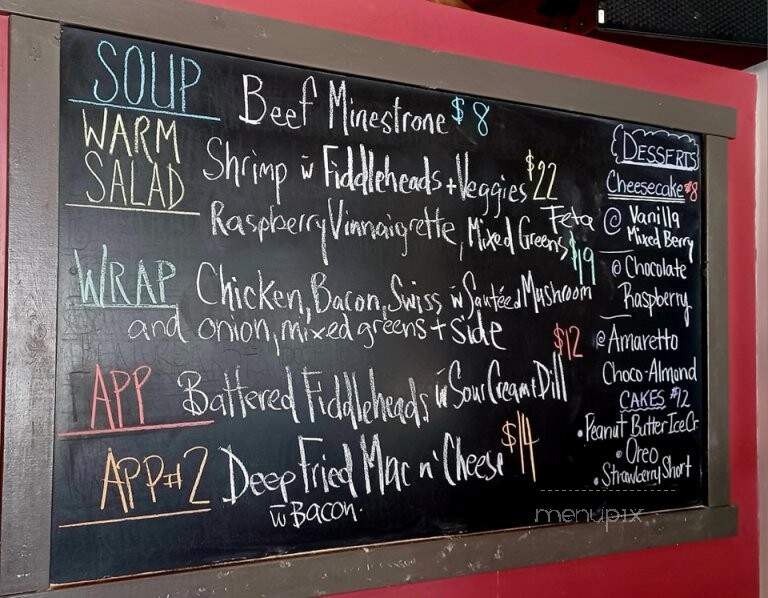 SOUP Beef Minestrone $8
WARM SALAD Shrimp w Fiddleheads + Veggies $22
Raspberry Vinnaigrette, Mixed Greens Feta
WRAP Chicken, Bacon, Swiss w Sautéed Mushroom $19
and onion, mixed greens + side
APP Battered Fiddleheads w Sour Cream + Dill $12
APP #2 Deep Fried Mac n' Cheese $14
w Bacon.
DESSERTS
Cheesecake $8
@ Vanilla
Mixed Berry
@ Chocolate
Raspberry
@ Amaretto
Choco-Almond
CAKES $12
• Peanut Butter Ice Cr
• Oreo
• Strawberry Short
menupix